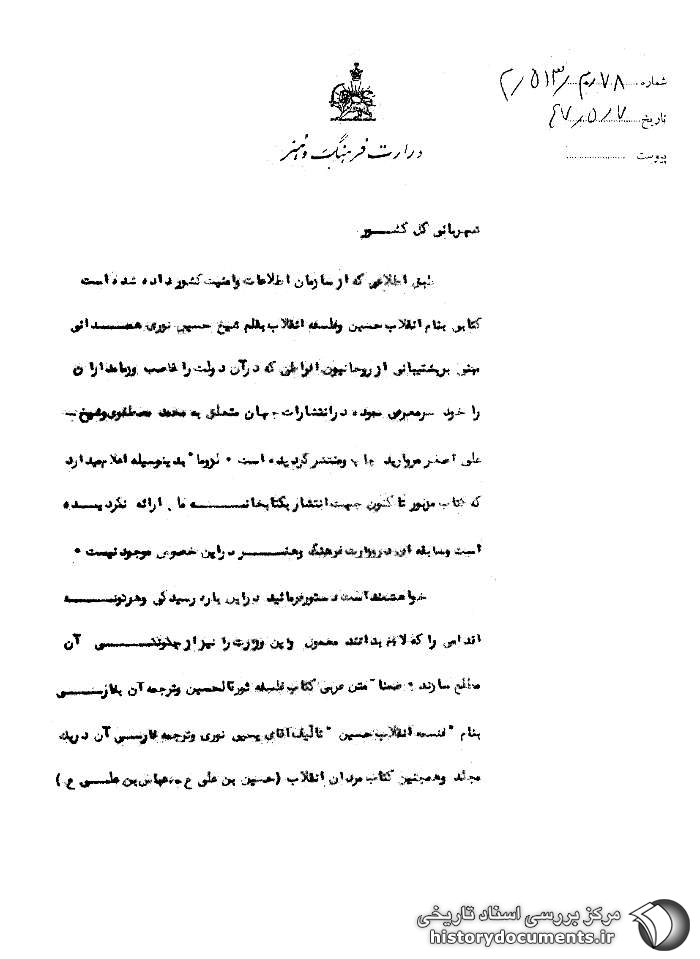 شماره ۲/۵۱۳/۳۰۷۸
تاریخ ۴۷/۵/۷
پیوست
وزارت فرهنگ و هنر
شهربانی کل کشـــور
طبق اطلاعی که از سازمان اطلاعات وامنیت کشور داده شده است
کتابی بنام انقلاب حسین وفلسفه انقلاب بقلم شیخ حسین نوری همـــدانی
مبنی برپشتیبانی از روحانیون افراطی که درآن دولت را غاصب وزمامداران
را خود سرمعرفی نموده درانتشارات جهان متعلق به محمد مصطفوی وشیخ ــ
علی اصغر مروارید چاپ ومنتشر گردیده است ۰ لزوما" بدینوسیله اعلام میدارد
که کتاب مزبور تا کنون جهت انتشار بکتابخانـــه ملی ارائه نگردیـــده
است وسابقه ای دروزارت فرهنگ وهنـــر دراین خصوص موجود نیست ۰
خواهشمند است دستور فرمائید دراین باره رسیدگی وهرگونـــه
اقدامی را که لازم بدانند معمول واین وزارت را نیز از چگونگـــی آن
مطلع سازند ۰ ضمنا" متن عربی کتاب فلسفه ثورةالحسین وترجمه آن بفارســـی
بنام " فلسفه انقلاب حسین " تالیف آقای یحیی نوری وترجمه فارســـی آن دریک
مجلد وهمچنین کتاب مردان انقلاب (حسین بن علی ع ــ عباس بن علـــی ع )
مرکز بررسی اسناد تاریخی
historydocuments.ir